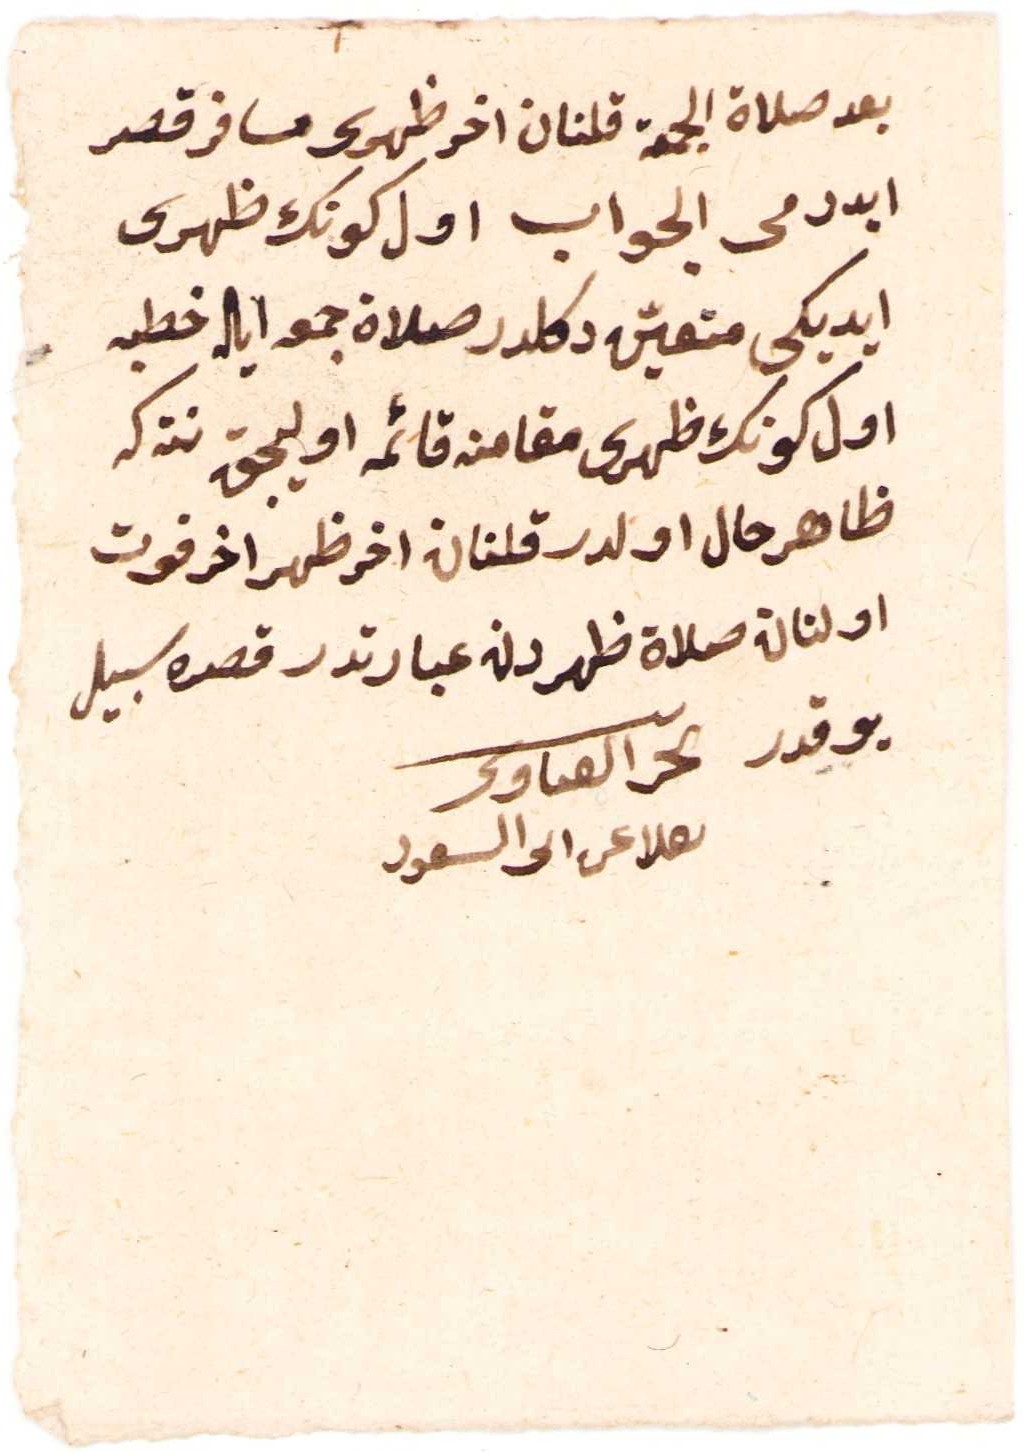 بعد صلاة الجمعة قلنان اخر ظهرى مسافر قصر
ايدرمى الجواب اول كونك ظهرى
ايديكى متعيّن دكلدر صلاة جمعه ايله خطبه
اول كونك ظهرى مقامنه قائمه اوليجق نته كه
ظاهر حال اولدر قلنان اخر ظهر اخر فوت
اولنان صلاة ظهردن عبارتدر قصره سبيل
يوقدر بحر الفتاوى
نقلا عن ابى السعود